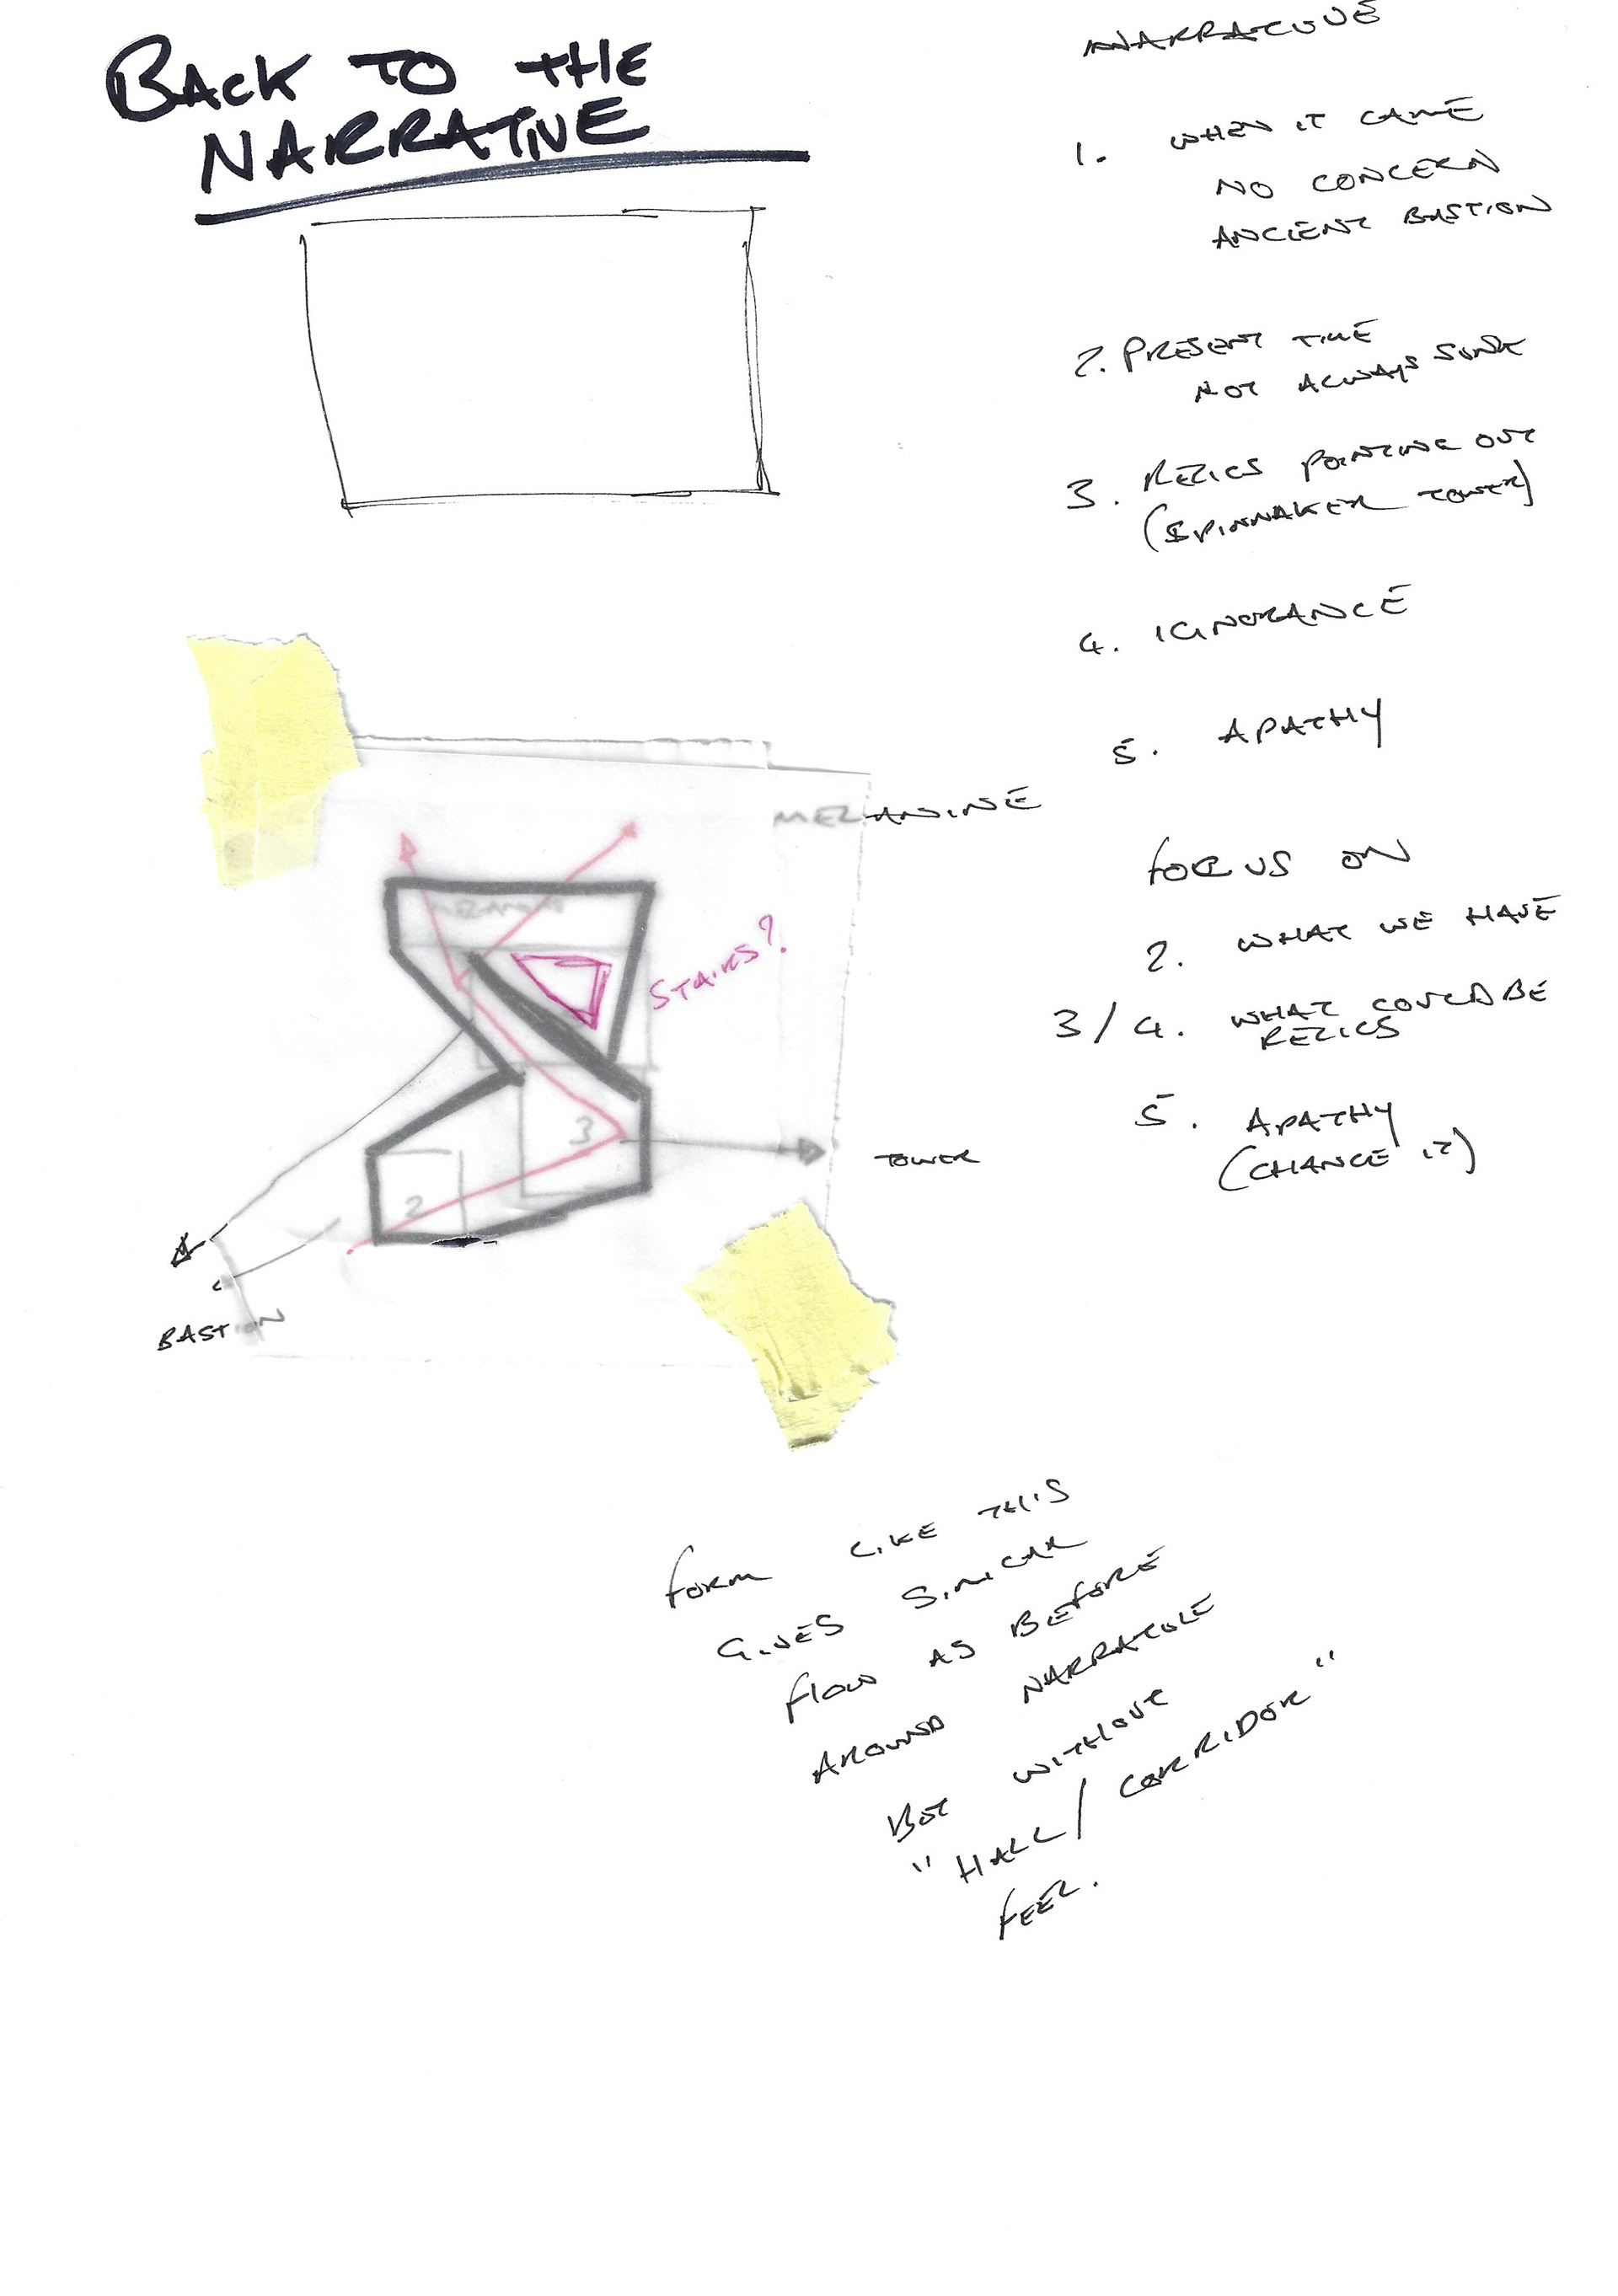 BACK TO THE
NARRATIVE
NARRATIVE
1. WHEN IT CAME
NO CONCERN
ANCIENT BASTION
2. PRESENT TIME
NOT ALWAYS SUNK
3. RELICS POINTING OUT
(SPINNAKER TOWER)
4. IGNORANCE
5. APATHY
MEZANINE
FOCUS ON
2. WHAT WE HAVE
3/4. WHAT COULD BE
RELICS
5. APATHY
(CHANGE IT)
STAIRS?
3
2
TOWER
BASTION
FORM LIKE THIS
GIVES SIMILAR
FLOW AS BEFORE
AROUND NARRATIVE
BUT WITHOUT
"HALL/CORRIDOR"
FEEL.